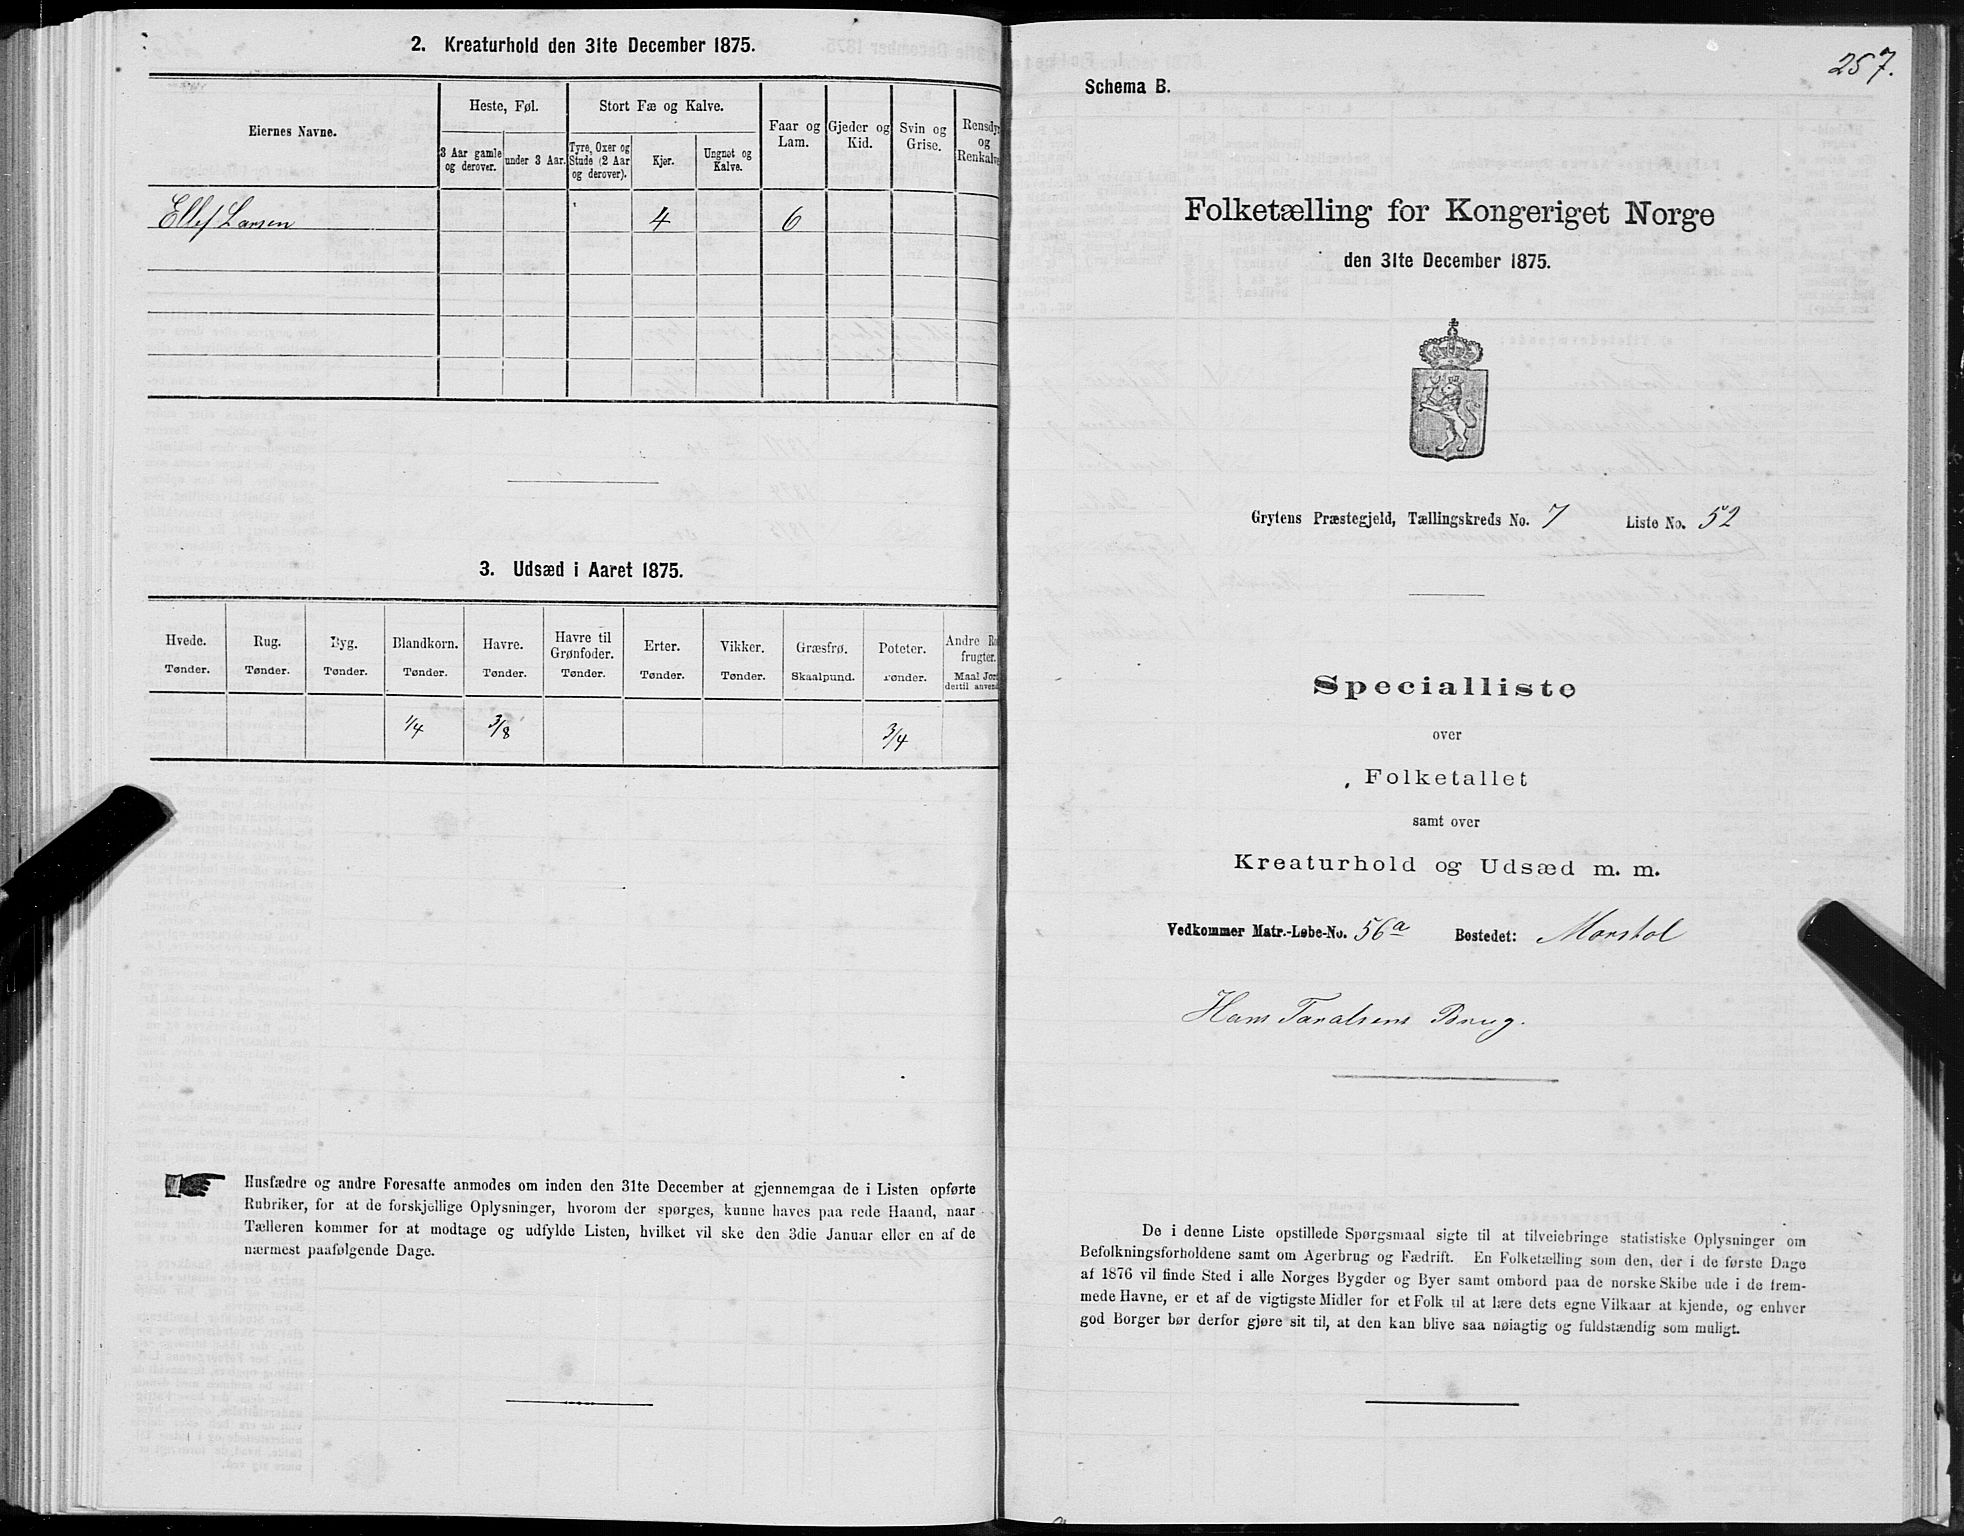 2. Kreaturhold den 31te December 1875.
Eiernes Navne.
Heste, Føl.
3 Aar gamle og derover.
under 3 Aar.
Stort Fæ og Kalve.
Tyre, Oxer og Stude (2 Aar og derover).
Kjør.
Ungnøt og Kalve.
Faar og Lam.
Gjeder og Kid.
Svin og Grise.
Rensdyr og Renkalve
Ellef Larsen 4 6
3. Udsæd i Aaret 1875.
Hvede. Rug. Byg. Blandkorn. Havre. Havre til Grønfoder. Erter. Vikker. Græsfrø. Poteter. Andre Ro frugter.
Tønder. Tønder. Tønder. Tønder. Tønder. Tønder. Tønder. Tønder. Skaalpund. Tønder. Maal Jord dertil anvend
1/4 3/8 3/4
Husfædre og andre Foresatte anmodes om inden den 31te December at gjennemgaa de i Listen opførte
Rubriker, for at de forskjellige Oplysninger, hvorom der spørges, kunne haves paa rede Haand, naar
Tælleren kommer for at modtage og udfylde Listen, hvilket vil ske den 3die Januar eller en af de
nærmest paafølgende Dage.
257.
Schema B.
Folketælling for Kongeriget Norge
den 31te December 1875.
Grytens Præstegjeld, Tællingskreds No. 7 Liste No. 52
Specialliste
over
Folketallet
samt over
Kreaturhold og Udsæd m. m.
Vedkommer Matr.-Løbe-No. 56a Bostedet: Morstol
Hans Taralsens Brug.
De i denne Liste opstillede Spørgsmaal sigte til at tilveiebringe statistiske Oplysninger om
Befolkningsforholdene samt om Agerbrug og Fædrift. En Folketælling som den, der i de første Dage
af 1876 vil finde Sted i alle Norges Bygder og Byer samt ombord paa de norske Skibe ude i de frem-
mede Havne, er et af de vigtigste Midler for et Folk til at lære dets egne Vilkaar at kjende, og enhver
god Borger bør derfor gjøre sit til, at den kan blive saa nøiagtig og fuldstændig som muligt.